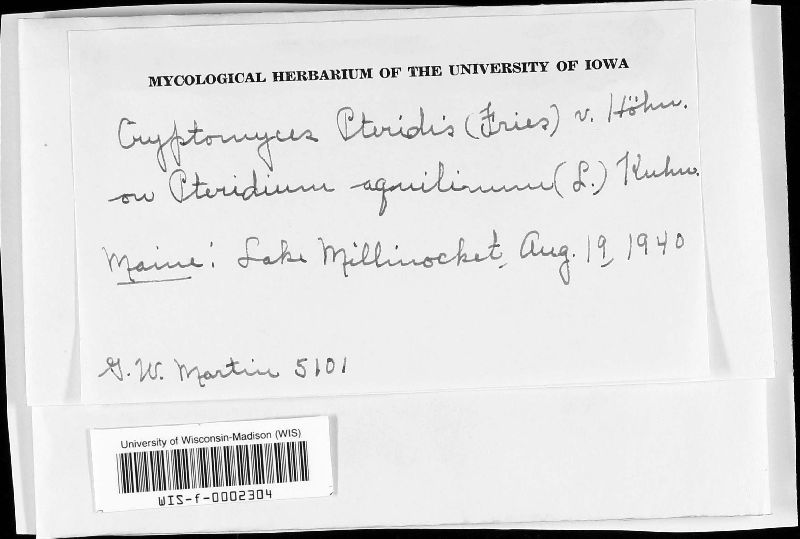 MYCOLOGICAL HERBARIUM OF THE UNIVERSITY OF IOWA
Cryptomyces Pteridis (Fries) v. Höhn.
on Pteridium aquilinum (L.) Kuhn.
Maine: Lake Millinocket, Aug. 19, 1940
G. W. Martin 5101
University of Wisconsin-Madison (WIS)
WIS-f-0002304